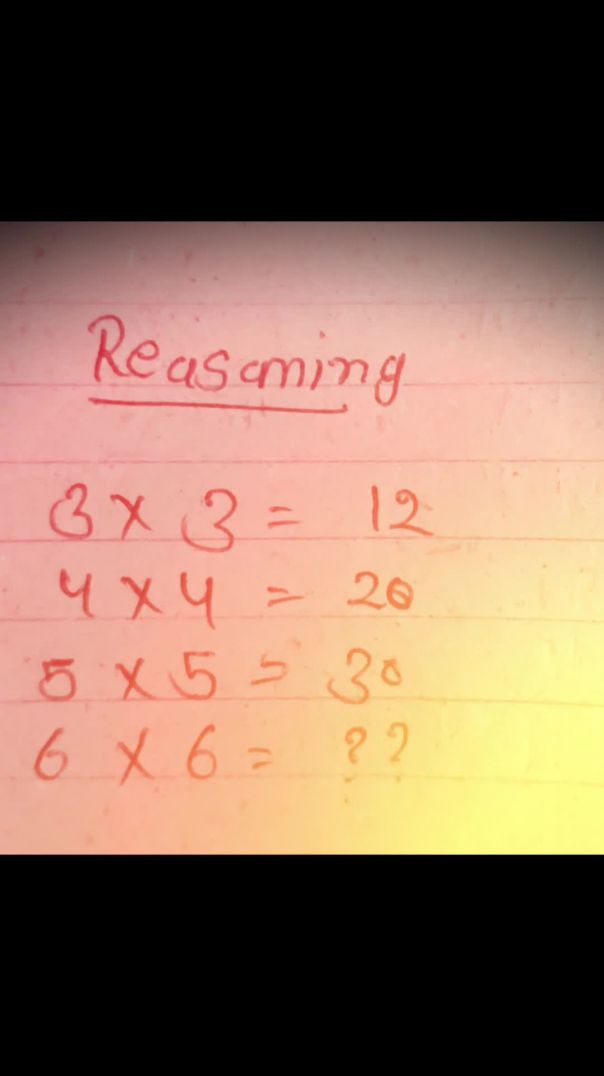 Reasoning
3 × 3 = 12
4 × 4 = 20
5 × 5 = 30
6 × 6 = ??